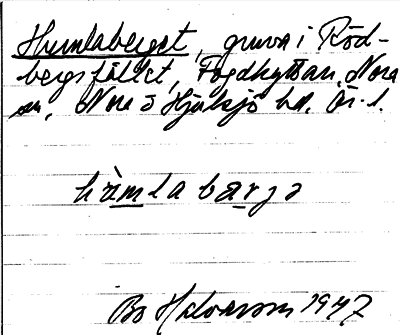 Humlaberget, gruva i Röd-
bergsfältet, Fogdhyttan, Nora
sn, Nora o Hjulsjö hd, Ör. l.
hùmla bærjə
Bo Halvarson 1947